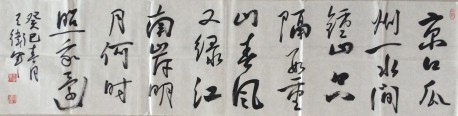 京口瓜
州一水间
鐘山只
隔数重
山春风
又绿江
南岸明
月何时
照我还
癸巳春月